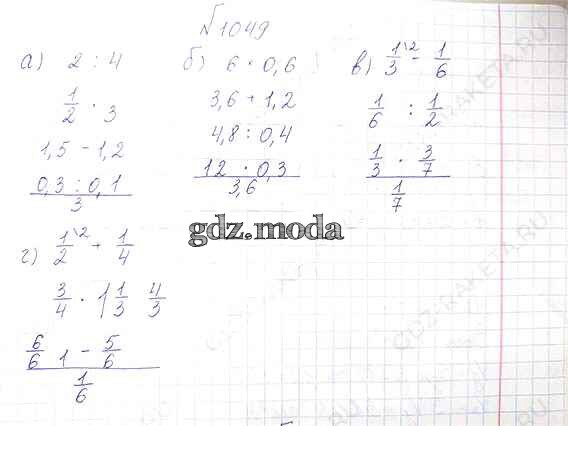 №1049
а) 2 : 4
1/2 · 3
1,5 - 1,2
0,3 : 0,1
3
б) 6 · 0,6
3,6 + 1,2
4,8 : 0,4
12 · 0,3
3,6
в) 1/3 \2 - 1/6
1/6 : 1/2
1/3 · 3/7
1/7
gdz.moda
г) 1/2 \2 + 1/4
3/4 · 1 1/3 4/3
6/6 1 - 5/6
1/6
GDZ-RAKETA.RU
GDZ-RAKETA.RU